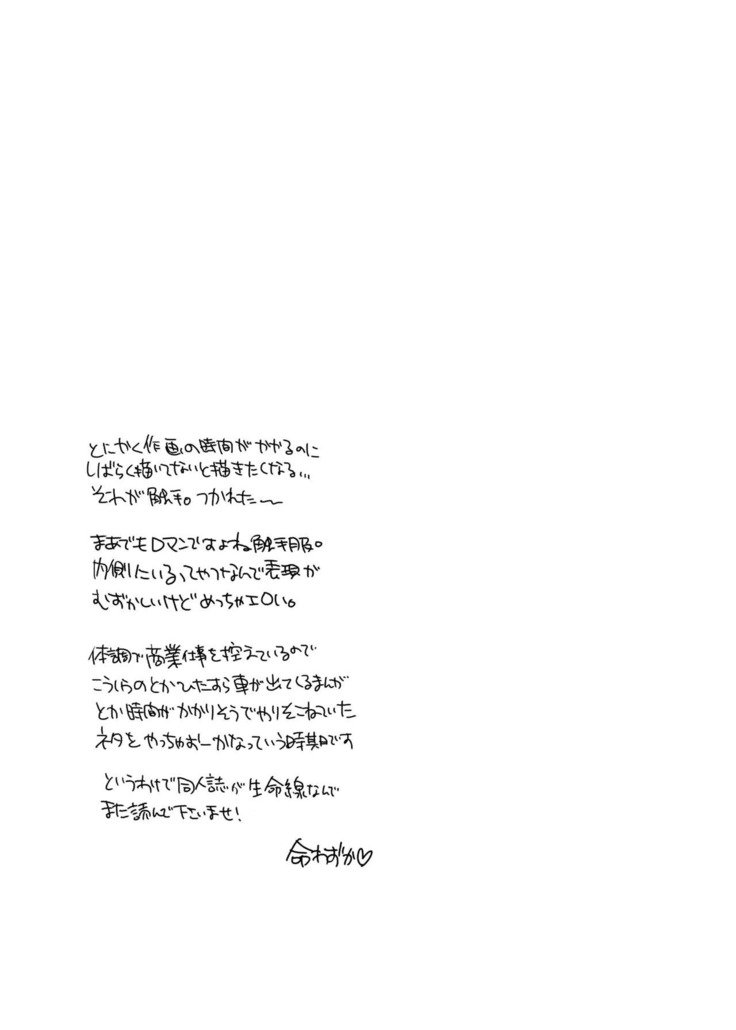 とにかく作画の時間がかかるのに
しばらく描いてないと描きたくなる…
それが触手。つかれた〜
まあでもロマンですよね触手服。
内側にいるってやつなんで表現が
むずかしいけどめっちゃエロい。
体調で商業仕事を控えているので
こうしらのとかひたすら車が出てくるまんが
とか時間がかかりそうでやりそこねていた
ネタをやっちゃおーかなっていう時期です
というわけで同人誌が生命線なんで
また読んで下さいませ!
命わずか♡